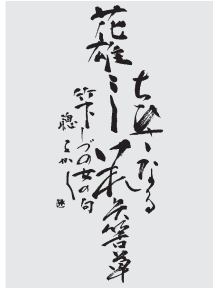 ちひさなる
花雄々しけれ
矢筈草
竹下しづの女の句